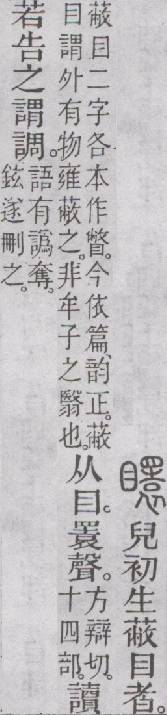 兒初生蔽目者。
蔽目二字各本作瞥。今依篇、韵正。蔽
目謂外有物雍蔽之。非牟子之翳也。
从目。瞏聲。
方辯切。
十四部。
讀
若告之謂調。
語有譌奪。
鉉遂刪之。